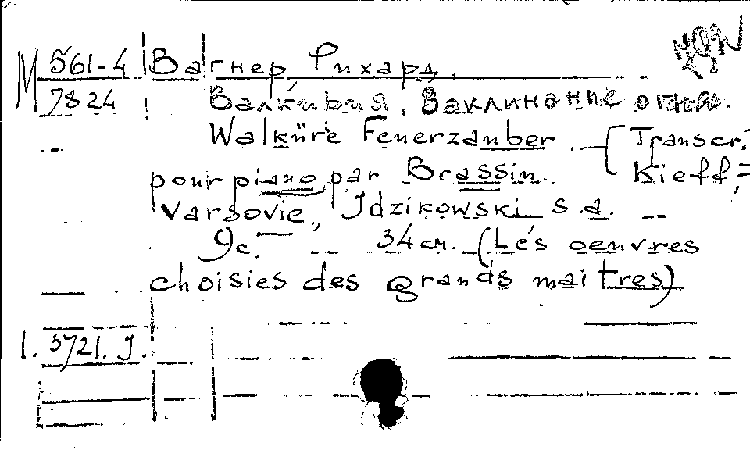 М 561-4 Вагнер, Рихард.
7824 Валкирия. Заклинание огня.
Walküre Feuerzauber. – (Transcr.
pour piano par Brassin. Kieff,=
Varsovie, Idzikowski s.a. --
9c. -- 34 см. (Les oeuvres
choisies des grands maitres)
1. 3721. J.